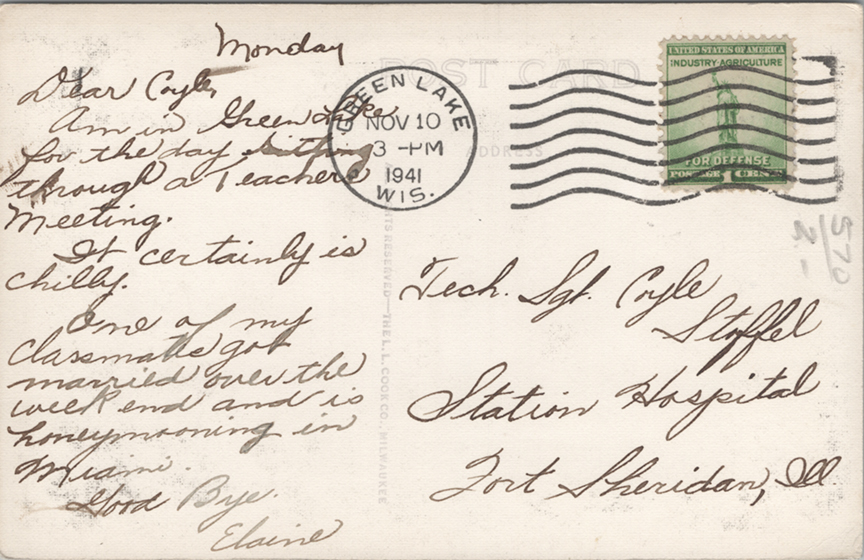 Monday
Dear Coyle,
Am in Green Lake
for the day sitting
through a Teachers
Meeting.
It certainly is
chilly.
One of my
classmates got
married over the
week end and is
honeymooning in
Miami.
Good Bye.
Elaine
POST CARD
ADDRESS
GREEN LAKE
NOV 10
3 -PM
1941
WIS.
UNITED STATES OF AMERICA
INDUSTRY AGRICULTURE
FOR DEFENSE
POSTAGE 1 CENT
Tech. Sgt. Coyle
Stoffel
Station Hospital
Fort Sheridan, Ill.
RESERVED—THE L.L. COOK CO., MILWAUKEE
570
2-